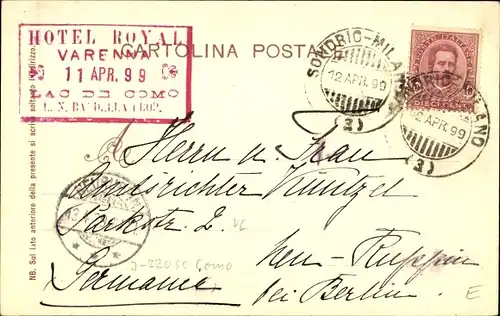 HOTEL ROYAL
VARENNA
11 APR. 99
LAC DE COMO
CARTOLINA POSTALE
SONDRIO-MILANO
12 APR. 99
(3)
SONDRIO-MILANO
12 APR. 99
(3)
DIECI CENT
NB. Sul lato anteriore della presente si scrive soltanto l'indirizzo.
Herrn u. Frau
Amtsrichter Küntzel
Parkstr. 2
VL
Neu-Ruppin
J-22050 Como
Germania
bei Berlin.
E